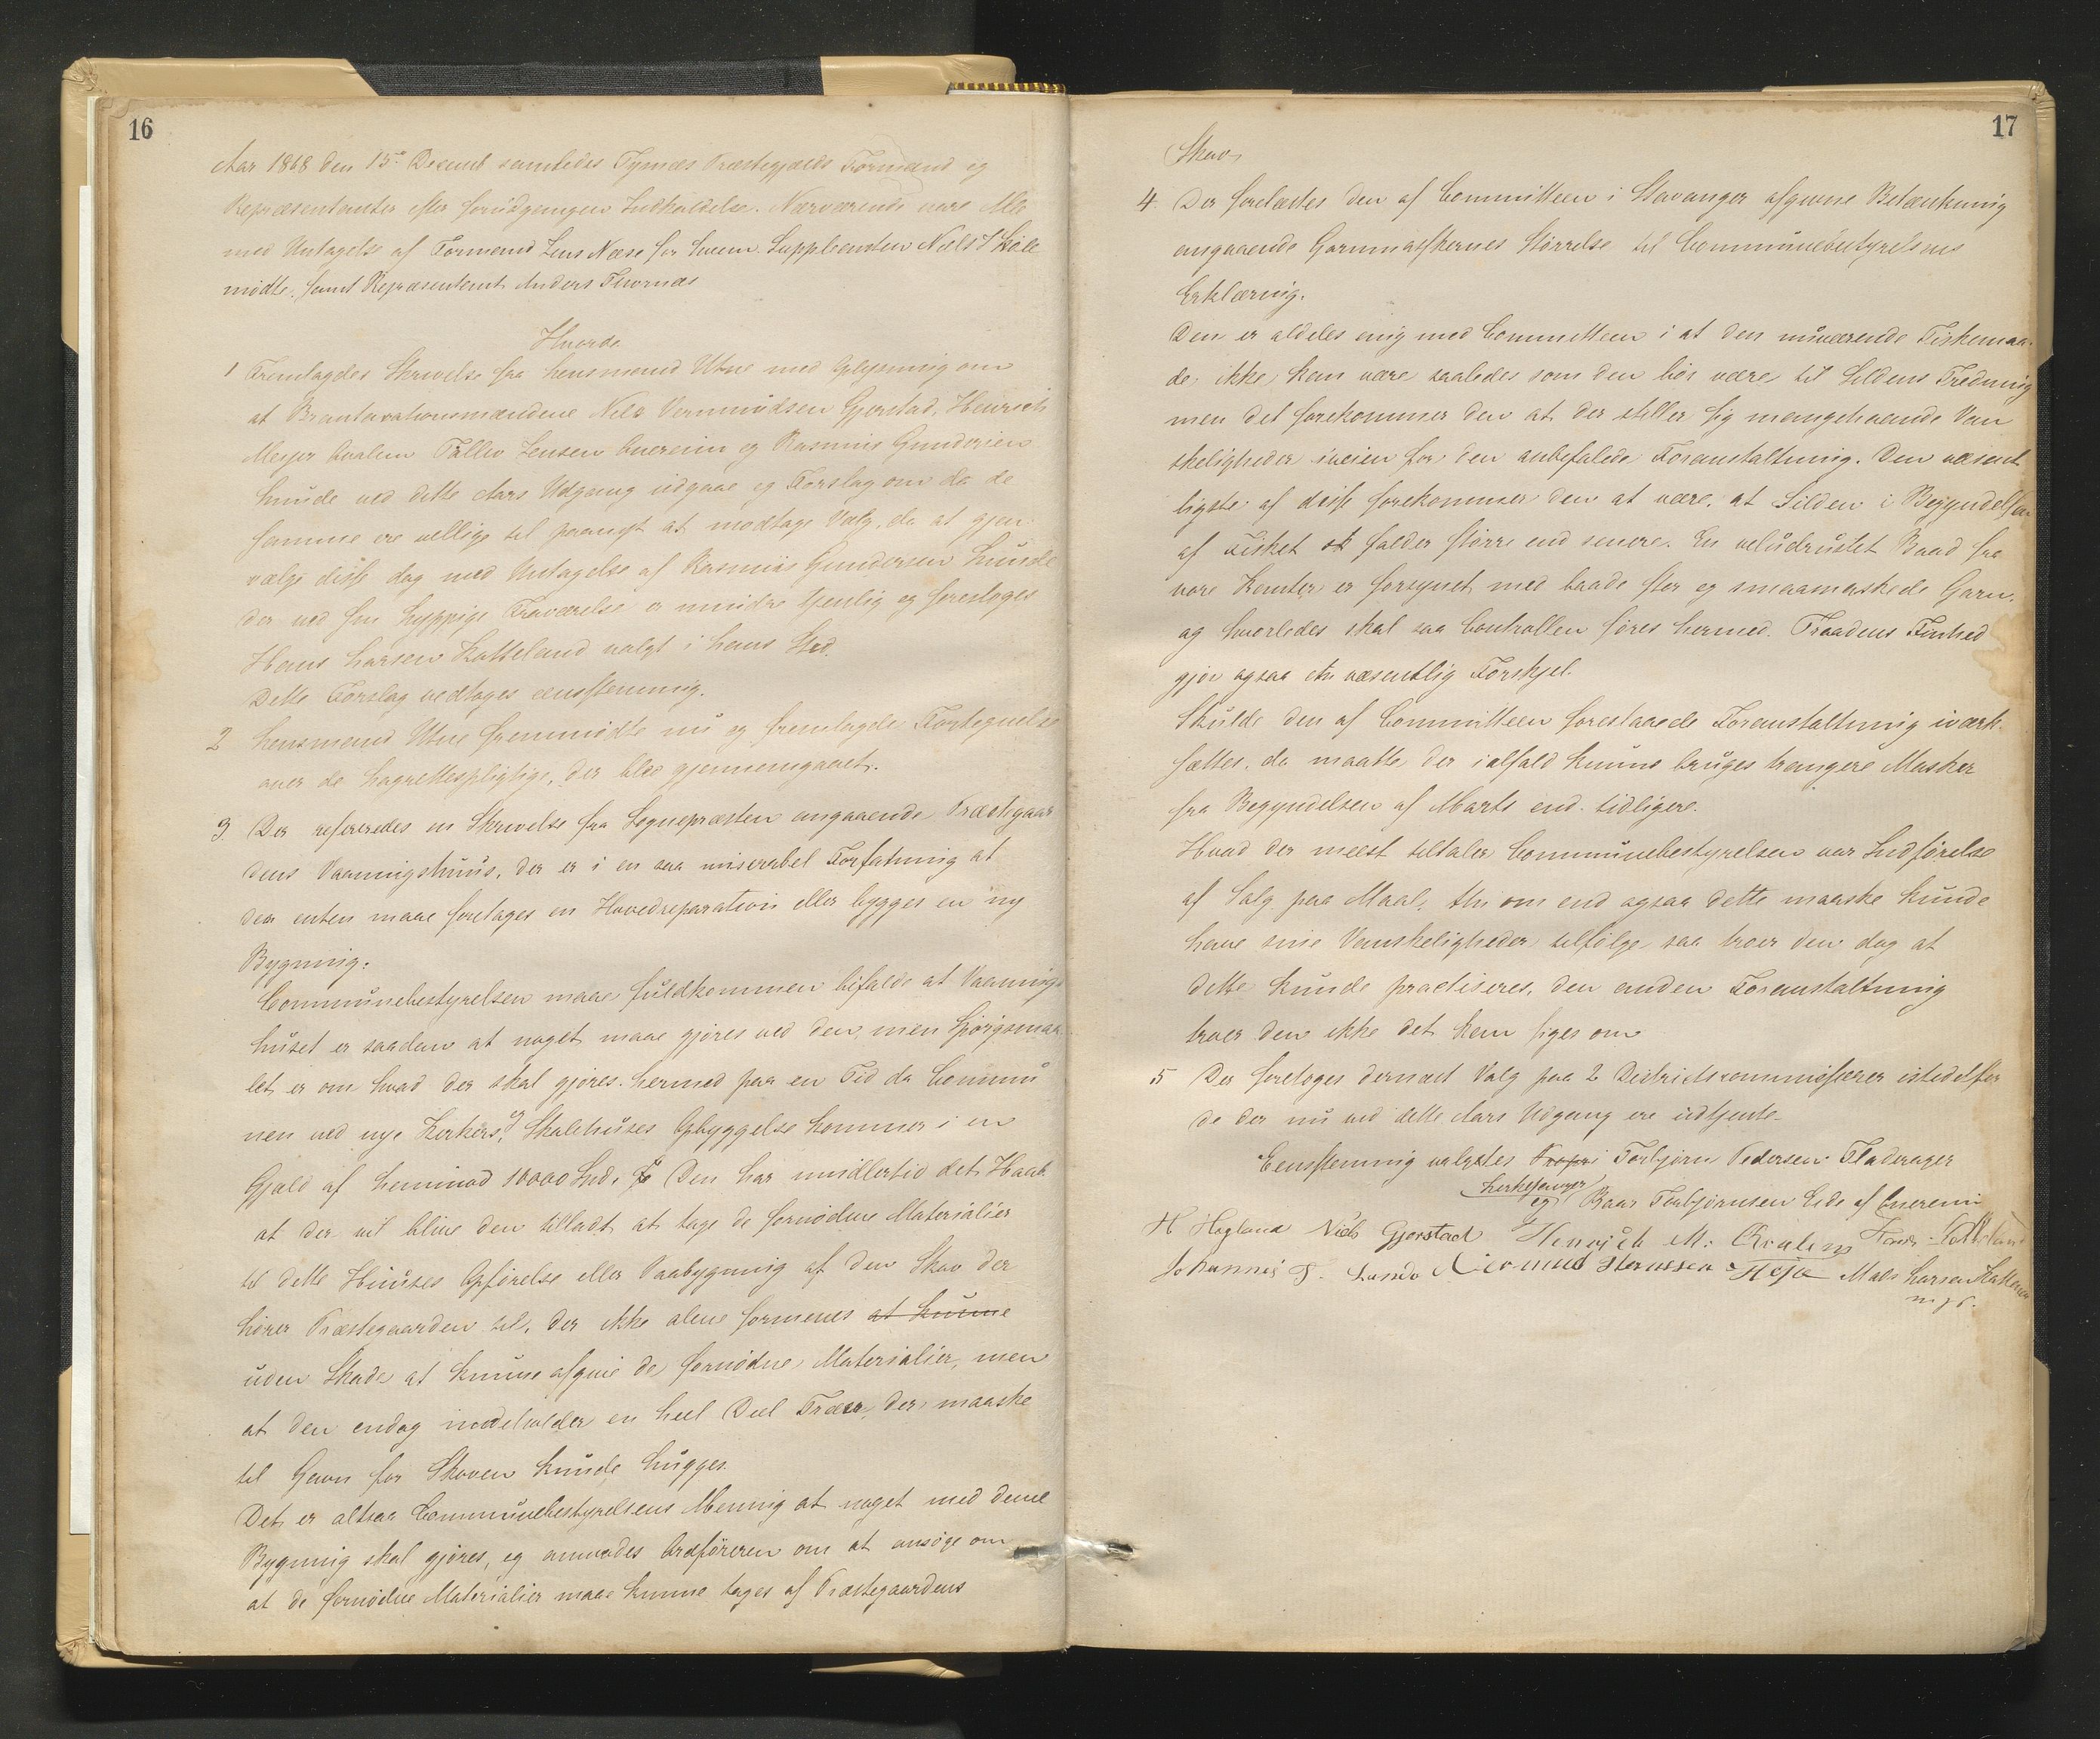 16
Aar 1868 den 15de Decembr samledes Tysnæs Præstegjælds Formænd og
Repræsentanter efter forudgangen Indkaldelse. Nærværende vare Alle
med Undtagelse af Formand Jens Næse for hvem Suppleanten Niels T Høle
mødte, samt Repræsentant Anders Thornæs
Hvorda
1 Fremlagdes Skrivelse fra Lensmand Utne med Oplysning om
at Brantaxationsmændene Nels Vermundsen Gjerstad, Henrich
Meyer Tollev Jensen og Rasmus Gundersen
Lunde ved dette Aars Udgang udgaae og Forslag om da de
samme ere villige til paanyt at modtage Valg, da at gjen
vælge disse dog med Undtagelse af Rasmus Gundersen Lunde
der ved sin hyppige Fraværelse er mindre tjenlig og foresloges
Hans Larsen Katteland valgt i hans Sted.
Dette Forslag vedtoges eenstemmig.
2 Lensmand Utne fremmødte nu og fremlagde Fortegnelse
over de Lagrettespligtige, der blev gjennemgaaet.
3 Der refereredes en Skrivelse fra Sognepræsten angaaende Præstegaar
dens Vaaningshuus, der er i en saa miserabel Forfatning at
der enten maae foretages en Hovedreparation eller bygges en ny
Bygning.
Communebestyrelsen maae fuldkommen bifalde at Vaanings
huset er saadan at noget maae gjøres ved den, men Spørgsmaa
let er om hvad der skal gjøres hermed paa en Tid da Commu
nen ved nye Kirkers og Skolehuses Opbyggelse kommer i en
Gjæld af henimod 10000 Spd. Den har imidlertid det Haab
at der vil blive den tilladt at tage de fornødne Materialier
til dette Huuses Opførelse eller Paabygning af den Skov der
hører Præstegaarden til, der ikke alene formenes at kunne
uden Skade at kunne afgive de fornødne Materialier, men
at den endog indeholder en heel Deel Træer, der maaske
til Gavn for Skoven kunde hugges.
Det er altsaa Communebestyrelsens Mening at noget med denne
Bygning skal gjøres, og anmodes Ordføreren om at ansøge om
at de fornødne Materialier maae kunne tages af Præstegaardens
17
Skov
4. Der forelæstes den af Committeen i Stavanger afgivne Betænkning
angaaende Garnmaskernes Størrelse til Communebestyrelsens
Erklæring.
Den er aldeles enig med Committeen i at den nuværende Fiskemaa-
de, ikke kan være saaledes som den bør være til Sildens Fredning
men det forekommer den at der stiller sig mangehaande Van
skeligheder iveien for den anbefalede Foranstaltning. Den væsent
ligste af disse forekommer den at være, at Silden i Begyndelsen
af Fisket falder større end senere. En veludrustet Baad fra
vore Kanter er forsynet med baade stor og smaamaskede Garn.
og hvorledes skal saa Controllen føres hermed. Traadens Finhed
gjør ogsaa en væsentlig Forskjel.
Skulde den af Committeen foreslaaede Foranstaltning iværk-
sættes, da maatte der ialfald kunne bruges trangere Masker
fra Begyndelsen af Marts end tidligere.
Hvad der meest tiltaler Communebestyrelsen var Indførelse
af Salg paa Maal, thi om end ogsaa dette maaske kunde
have sine Vanskeligheder tilfølge saa troer den dog at
dette kunde practiseres, den anden Foranstaltning
troer den ikke det kan siges om
5 Der foretoges dernæst Valg paa 2 Districtscommissærer istedetfor
de der nu ved dette Aars Udgang ere udtjente.
Eenstemmig valgtes Torbjørn Pedersen Fladerager
Kirkesanger
og Baar Torbjørnsen Eide af
H Hogland Niels Gjerstad Henrich M:
Johannes T. Sando Hermansen Mads Larsen
m. p. P.